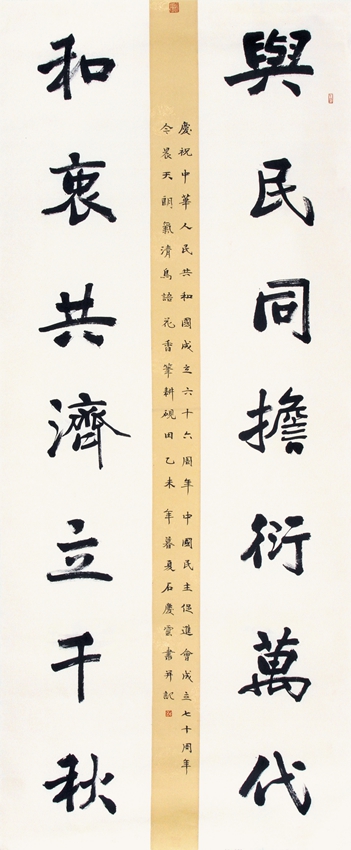 與民同擔衍萬代
慶祝中華人民共和國成立六十六周年中國民主促進會成立七十周年
令晨天朗氣清鳥語花香筆耕硯田乙未年暮夏石慶雲書并記
和衷共濟立千秋